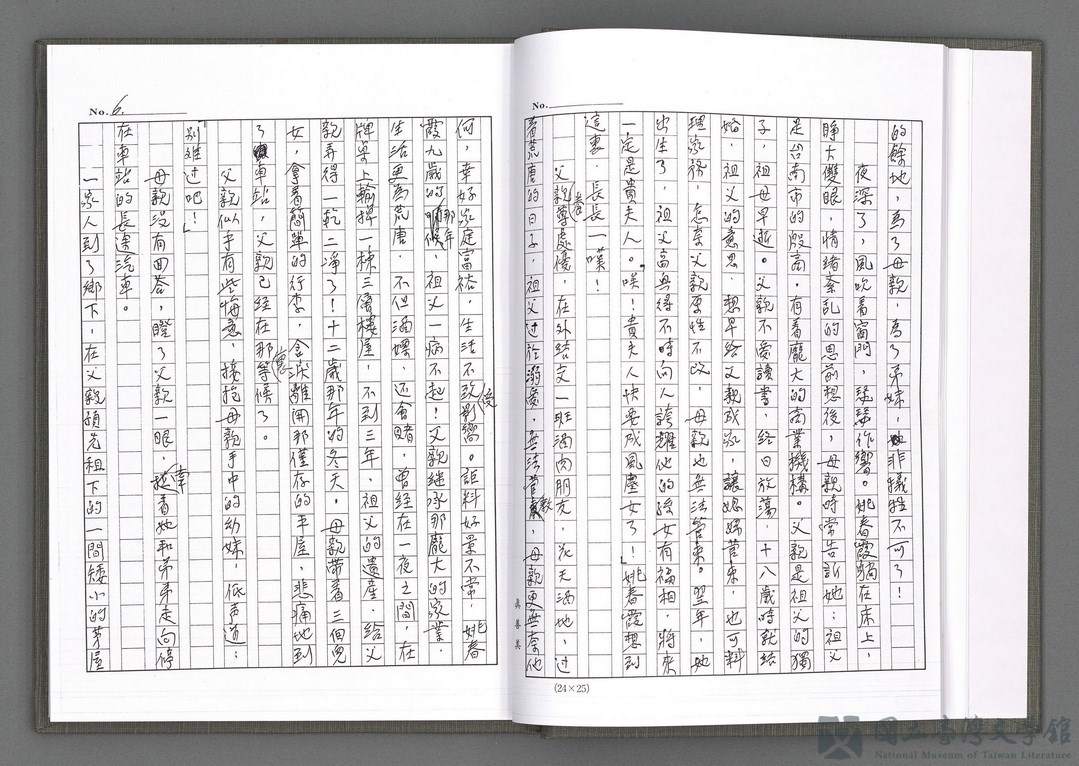 No.
的餘地，為了母親，為了弟妹，非犧牲不可了！
夜深了，風吹着窗門，瑟瑟作響。姚春霞躺在床上，
睜大雙眼，情緒紊亂的思前想後，母親時常告訴她：祖父
是台南市的殷商，有着龐大的商業機構。父親是祖父的獨
子，祖母早逝。父親不愛讀書，終日放蕩，十八歲時就結
婚，祖父的意思，想早給父親成家，讓媳婦管束，也可料
理家務，怎奈父親原性不改，母親也無法管束。翌年，她
出生了，祖父高興得不時向人誇耀他的孫女有福相，將來
一定是貴夫人。唉！貴夫人快要成風塵女了！」姚春霞想到
這裏，長長一嘆！
父親養尊處優，在外結交一班酒肉朋友，花天酒地，過
着荒唐的日子，祖父過於溺愛，無法管教，母親更無奈他
真善美
(24×25)
No. 6.
何，幸好家庭富裕，生活不致受影響。詎料好景不常，姚春
霞九歲的那年，祖父一病不起！父親繼承那龐大的家業，
生活更為荒唐，不但酒嫖，还會賭，曾經在一夜之間，在
牌桌上輸掉一棟三層樓屋，不到三年，祖父的遺産，給父
親弄得一乾二凈了！十二歲那年的冬天，母親帶着三個兒
女，拿着簡單的行李，含淚離開那僅存的平屋，悲痛地到
了車站，父親已經在那等候了。
父親似乎有些悔意，接抱母親手中的幼妹，低声道：
「別难过吧！」
母親没有回答，瞪了父親一眼，牽着她和弟弟走向停
在車站的長途汽車。
一家人到了鄉下，在父親損先祖下的一間矮小的茅屋
國立臺灣文學館
National Museum of Taiwan Literature